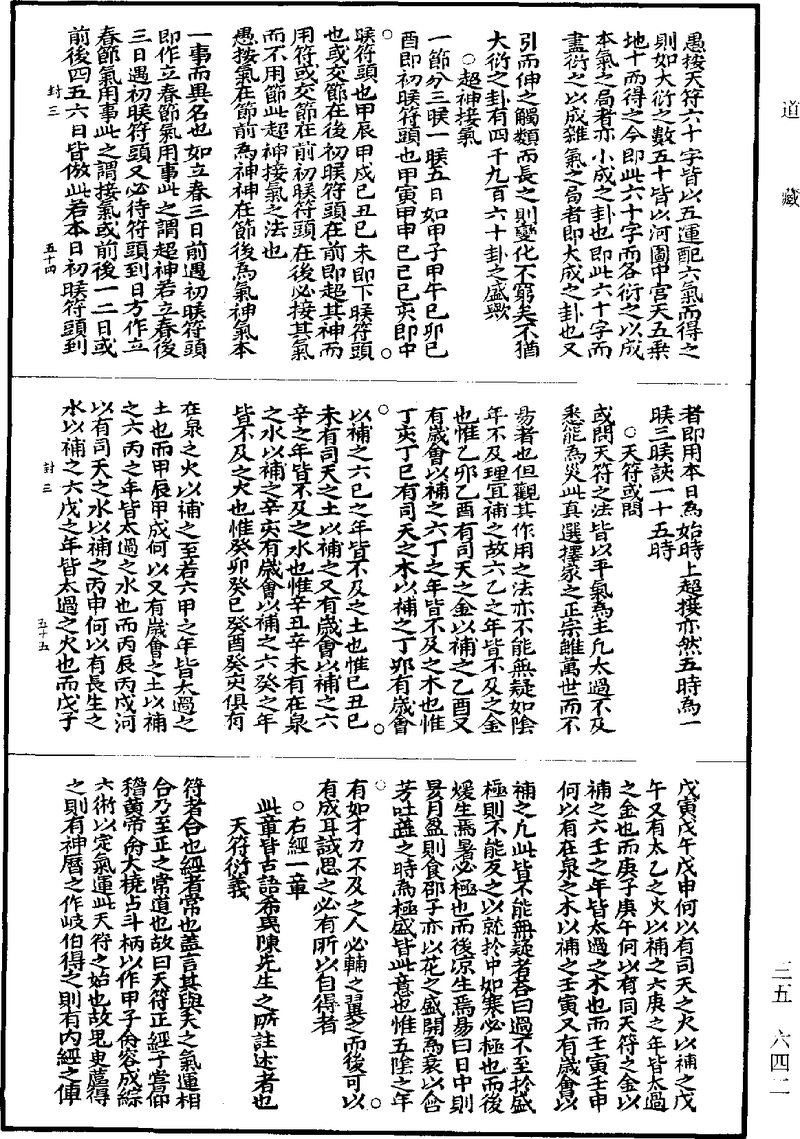 道藏
愚按天符六十字皆以五運配六氣而得之
則如大衍之數五十皆以河圖中宮天五乗
地十而得之今即此六十字而各衍之以成
本氣之局者亦小成之卦也即此六十字而
盡衍之以成雜氣之局者即大成之卦也又
引而伸之觸類而長之則變化不窮矣不猶
大衍之卦有四千九百六十卦之盛歟
○超神接氣
一節分三㬋一㬋五日如甲子甲午已卯已
酉即初㬋符頭也甲寅甲申已已已亥即中
㬋符頭也甲辰甲戌已丑已未即下㬋符頭
也或交節在後初㬋符頭在前即超其神而
用符或交節在前初㬋符頭在後必接其氣
而不用節此超神接氣之法也
愚按氣在節前為神神在節後為氣神氣本
一事而異名也如立春三日前遇初㬋符頭
即作立春節氣用事此之謂超神若立春後
三日遇初㬋符頭又必待符頭到日方作立
春節氣用事此之謂接氣或前後一二日或
前後四五六日皆倣此若本日初㬋符頭到
封三
五十四
者即用本日為始時上超接亦然五時為一
㬋三㬋該一十五時
○天符或問
或問天符之法皆以平氣為主凡太過不及
悉能為災此真選擇家之正宗雖萬世而不
易者也但觀其作用之法亦不能無疑如陰
年不及理宜補之故六乙之年皆不及之金
也惟乙卯乙酉有司天之金以補之乙酉又
有歲會以補之六丁之年皆不及之木也惟
丁亥丁已有司天之木以補之丁卯有歲會
以補之六已之年皆不及之土也惟已丑已
未有司天之土以補之又有歲會以補之六
辛之年皆不及之水也惟辛丑辛未有在泉
之水以補之辛亥有歲會以補之六癸之年
皆不及之火也惟癸卯癸已癸酉癸亥俱有
在泉之火以補之至若六甲之年皆太過之
土也而甲辰甲戌何以又有歲會之土以補
之六丙之年皆太過之水也而丙辰丙戌河
以有司天之水以補之丙申何以有長生之
水以補之六戊之年皆太過之火也而戊子
封三
五十五
戊寅戊午戊申何以有司天之火以補之戊
午又有太乙之火以補之六庚之年皆太過
之金也而庚子庚午何以有同天符之金以
補之六壬之年皆太過之木也而壬寅壬申
何以有在泉之木以補之壬寅又有歲會以
補之凡此皆不能無疑者荅曰過不至於盛
極則不能反之以就於中如寒必極也而後
煖生焉暑必極也而後凉生焉昜曰日中則
昃月盈則食邵子亦以花之盛開為衰以含
芳吐蕋之時為極盛皆此意也惟五陰之年
有如才力不及之人必輔之翼之而後可以
有成耳試思之必有所以自得者
○右經一章
此章皆古語希夷陳先生之所註述者也
天符衍義
符者合也經者常也蓋言其與天之氣運相
合乃至正之常道也故曰天符正經子嘗仰
稽黃帝俞大橈占斗柄以作甲子俞容成綜
六術以定氣運此天符之始也故鬼臾蓲得
之則有神曆之作岐伯得之則有内經之俥
三五
六四二